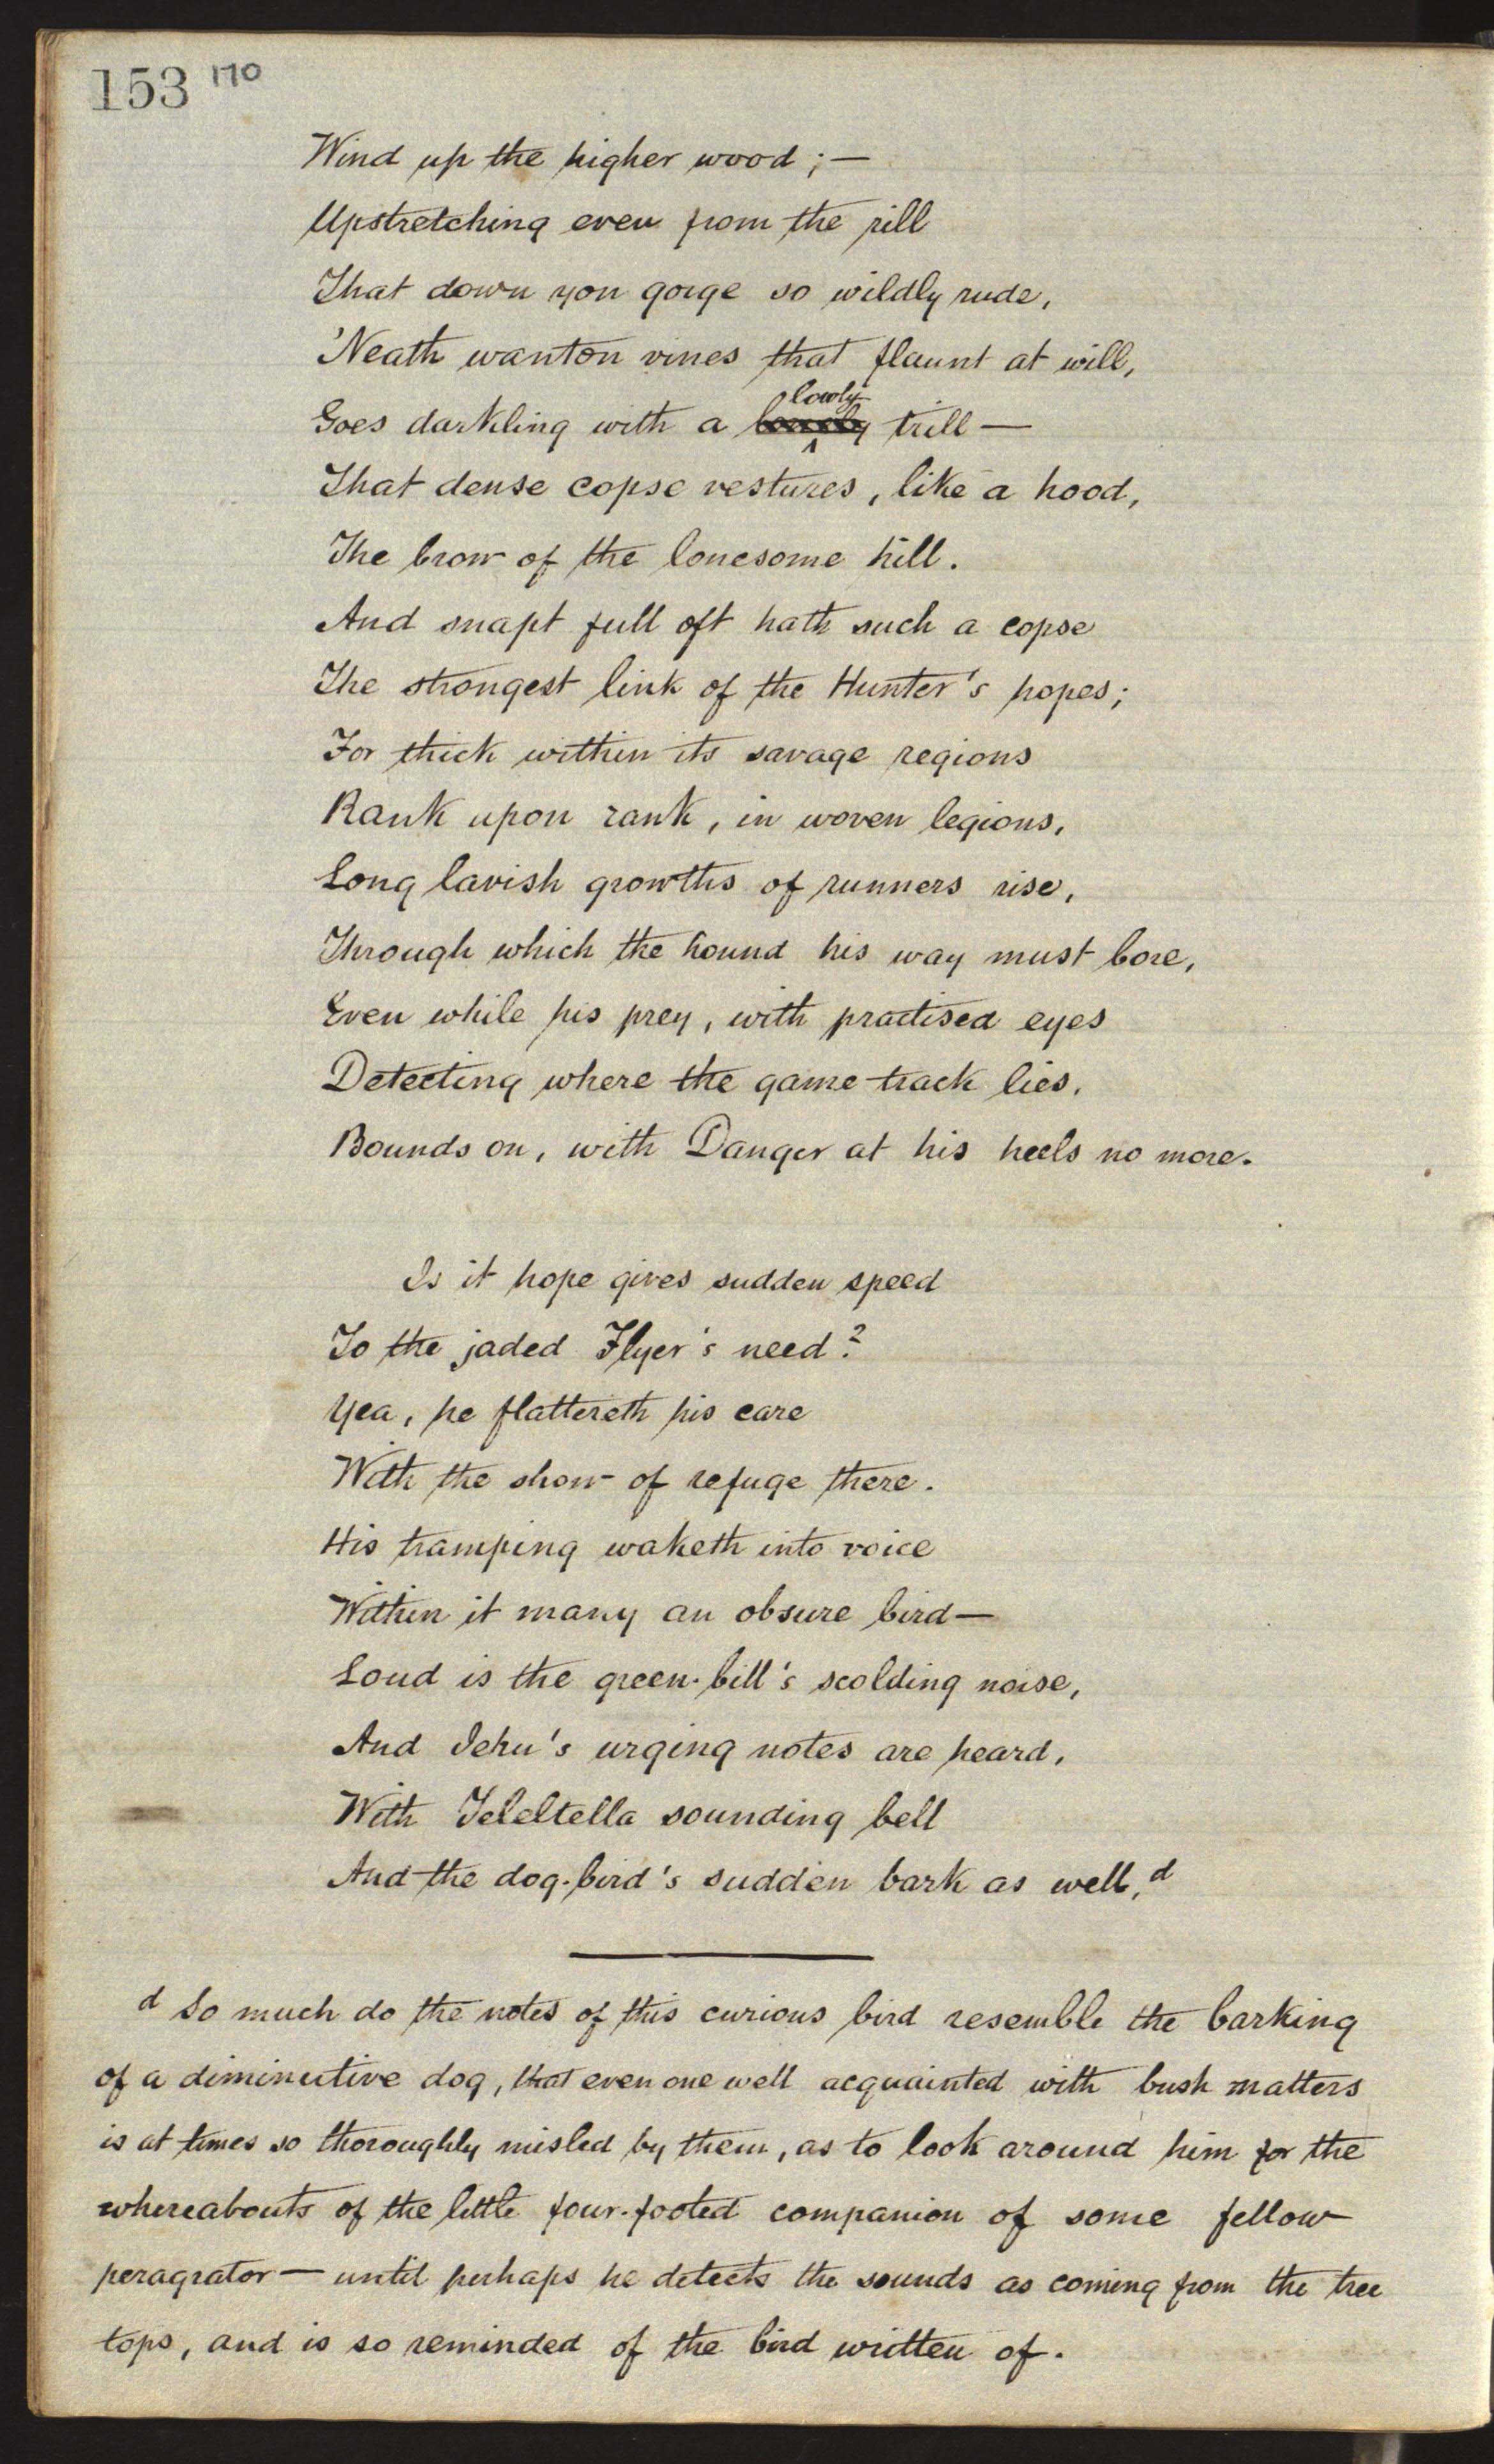 153 170
Wind up the higher wood; —
Upstretching even from the rill
That down yon gorge so wildly rude,
'Neath wanton vines that flaunt at will,
lowly
Goes darkling with a trill —
That dense copse vestures, like a hood,
The brow of the lonesome hill.
And snapt full oft hath such a copse
The strongest link of the Hunter's hopes;
For thick within its savage regions
Rank upon rank, in woven legions,
Long lavish growths of runners rise,
Through which the hound his way must bore,
Even while his prey, with practised eyes
Detecting where the game-track lies,
Bounds on, with Danger at his heels no more.
Is it hope gives sudden speed
To the jaded Flyer's need?
Yea, he flattereth his care
With the show of refuge there.
His tramping waketh into voice
Within it many an obsure bird —
Loud is the green-bill's scolding noise,
And Jehu's urging notes are heard,
With Teleltella sounding bell
And the dog-bird's sudden bark as well,d
d So much do the notes of this curious bird resemble the barking
of a diminutive dog, that even one well acquainted with bush matters
is at times so thoroughly misled by them, as to look around him for the
whereabouts of the little four-footed companion of some fellow
peragrator — until perhaps he detects the sounds as coming from the tree
tops, and is so reminded of the bird written of.